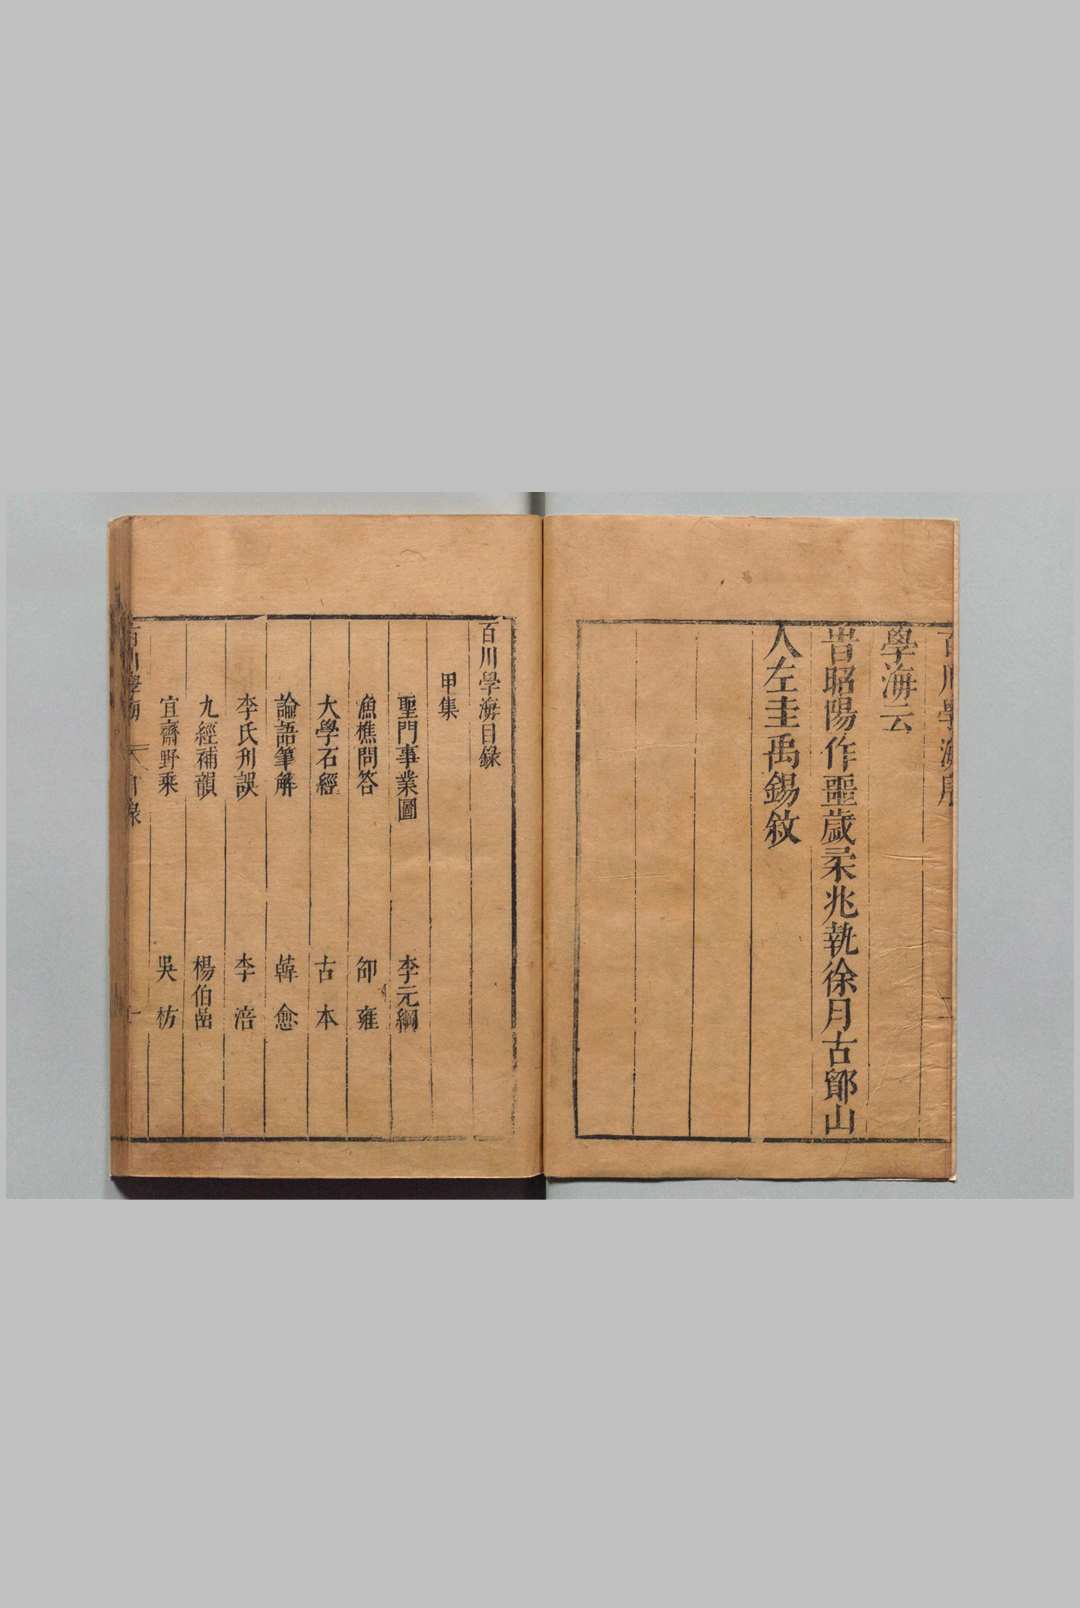 百川學海序
學海云
旹昭陽作噩歲柔兆執徐月古鄮山
人左圭禹錫敘
百川學海目錄
甲集
聖門事業圖 李元綱
漁樵問答 邵雍
大學石經 古本
論語筆解 韓愈
李氏刋誤 李涪
九經補韻 楊伯嵒
宜齋野乘 吳枋
百川學海 目錄 一